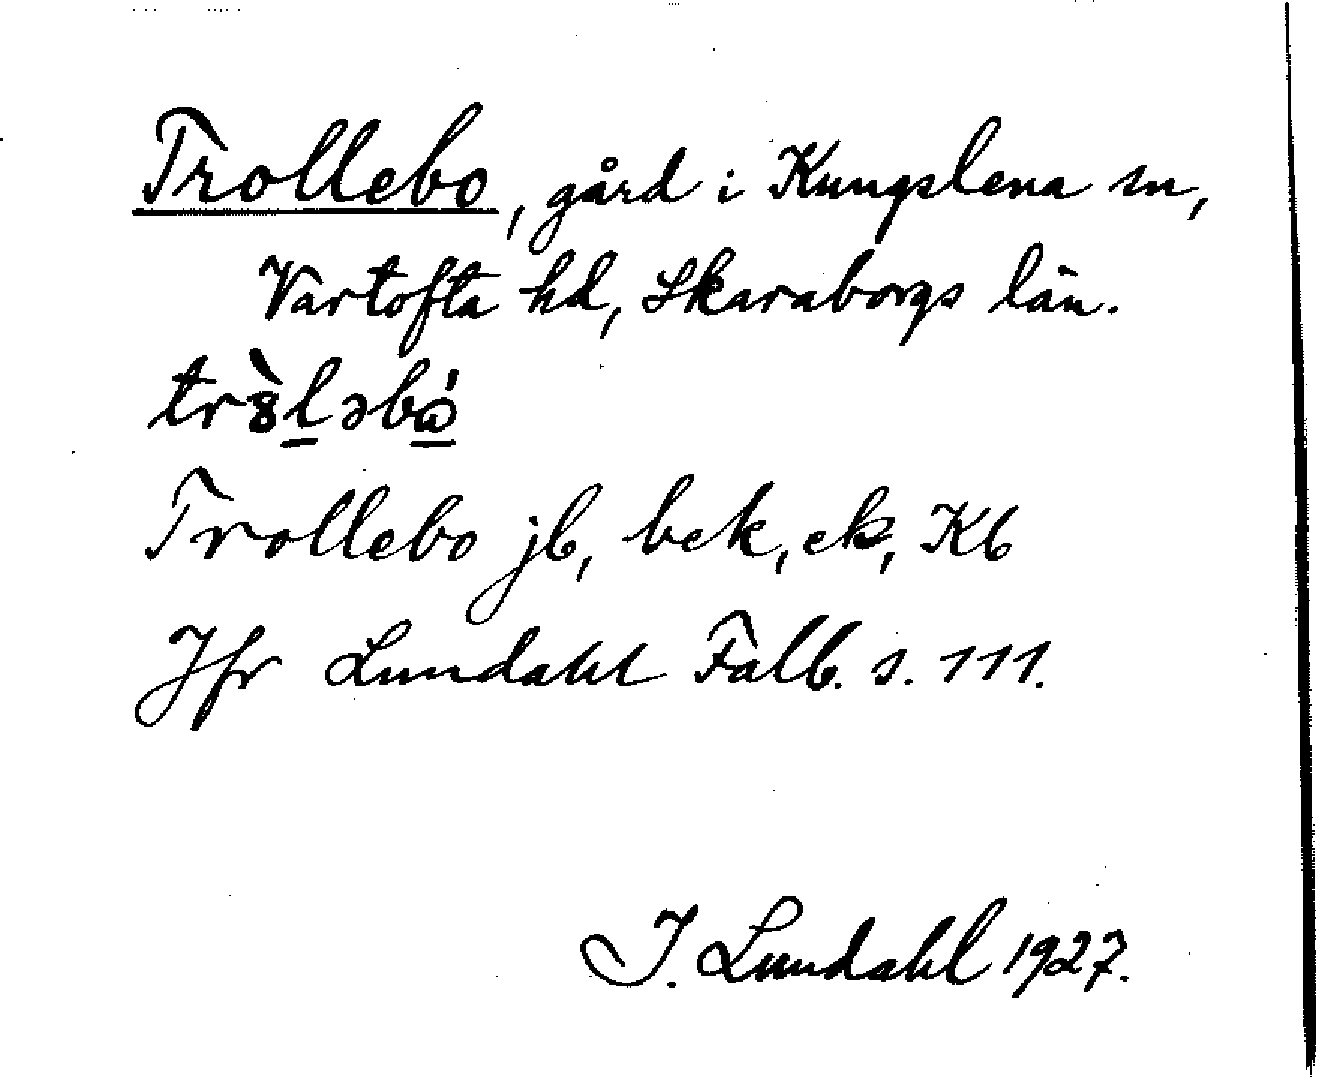 Trollebo, gård i Kungslena sn,
Vartofta hd, Skaraborgs län.
tr8̀l̲əbώ̲
Trollebo jb, bek, ek, Kb
Jfr Lundahl Falb. s. 111.
I. Lundahl 1927.